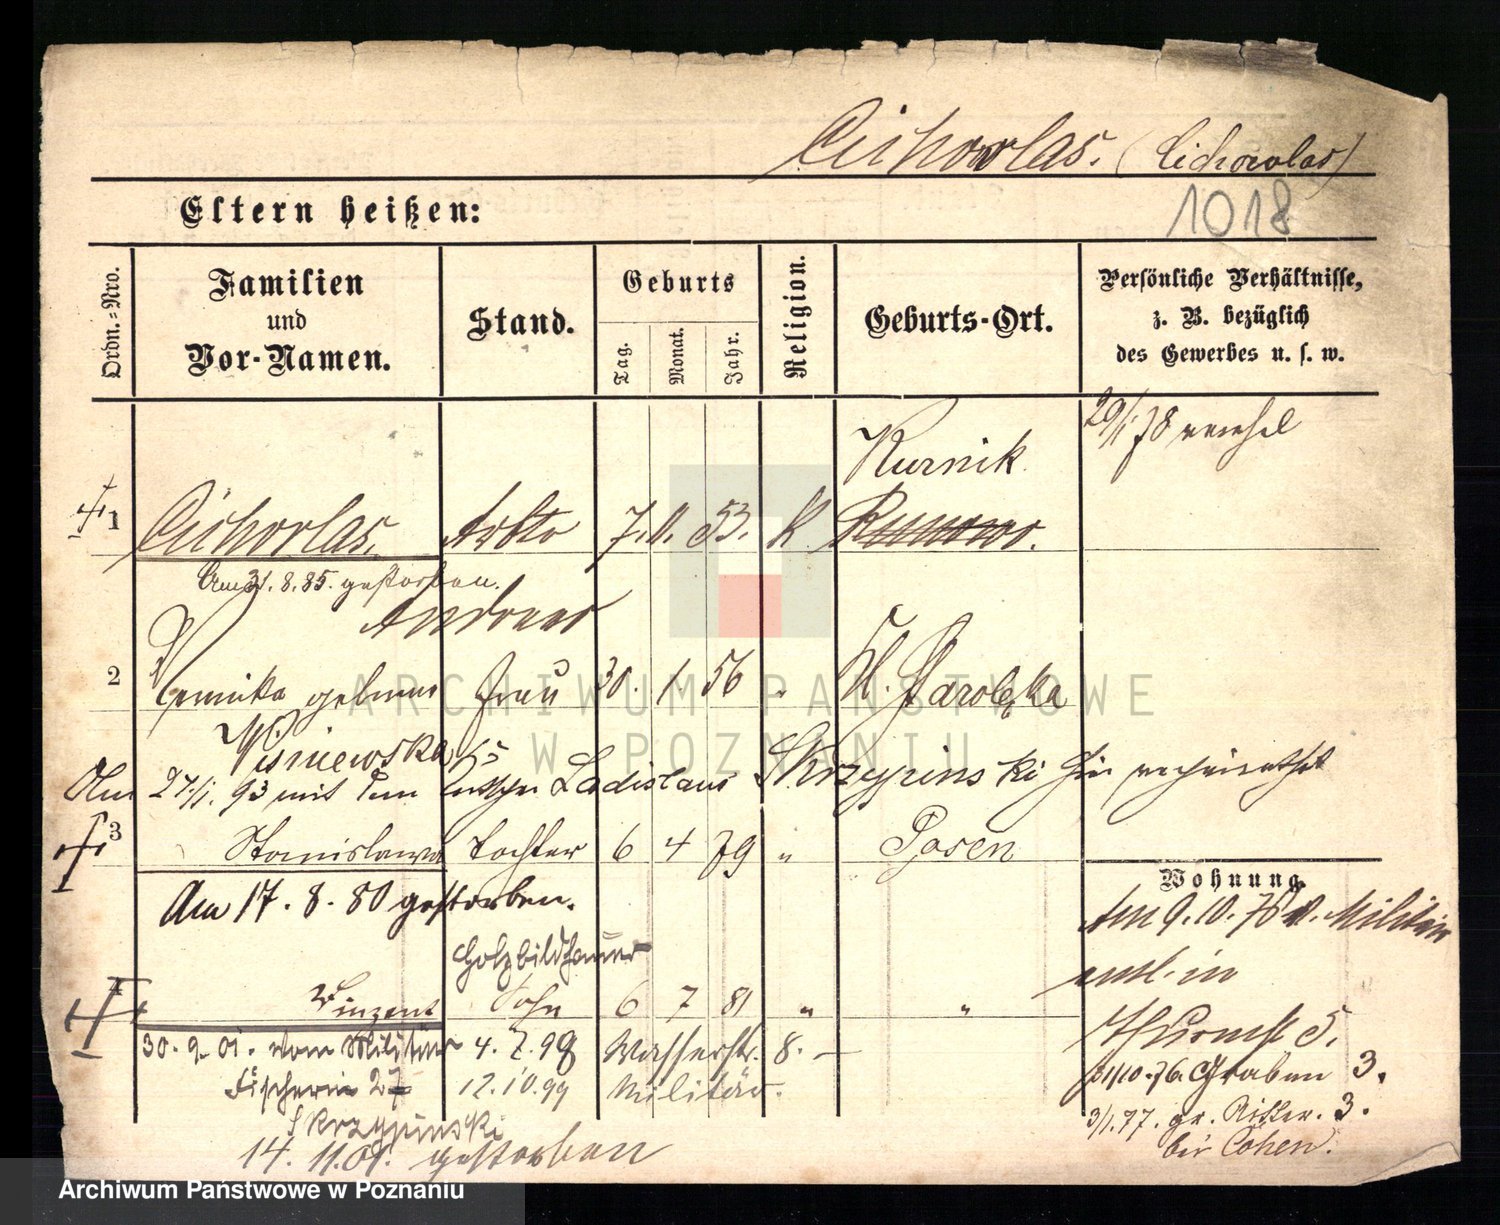 Cichorlas. (Cichorolas)
1018
Eltern heißen:
Ordn.-Nro.
Familien
und
Vor-Namen.
Stand.
Geburts
Tag.
Monat.
Jahr.
Religion.
Geburts-Ort.
Persönliche Verhältnisse,
z. B. bezüglich
des Gewerbes u. s. w.
29/1 78
Kurnik
1 Cichorlas. 7. 11. 53. K
Am 31.8.85. gestorben.
Andreas
2 geborene Frau 30. 1. 56 "
Wisniewska
Am 27./1. 93 mit dem Ladislaus Skrzypinski hier verheirathet
3 Stanislawa Tochter 6 4 79 " Posen
Am 17. 8. 80 gestorben.
Wohnung.
Am 9.10. Militär
entl. in
Holzbildhauer
4 Vinzent Sohn 6 7 81 " "
Thurmst 5.
30. 9. 01. vom Militär 4. 7. 98 Wasserstr. 8. —
Fischerei 27 12.10.99 Militär.
31/10.76. Graben 3.
Skrzypinski
3/1.77. gr. Ritter. 3.
14. 11.01. gestorben
bei Cohen.
ARCHIWUM PAŃSTWOWE
W POZNANIU
Archiwum Państwowe w Poznaniu